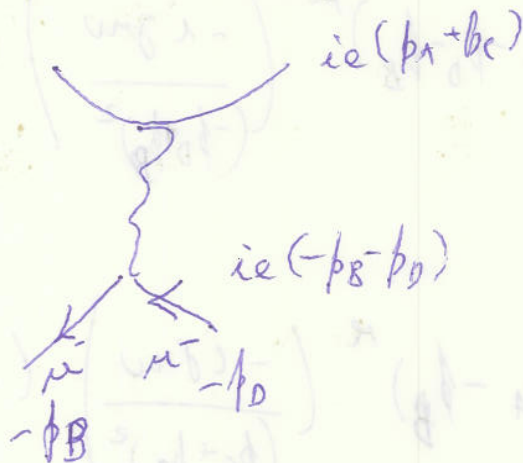 ie(p_A + p_C)
ie(-p_B - p_D)
μ⁻ μ⁻
-p_B -p_D